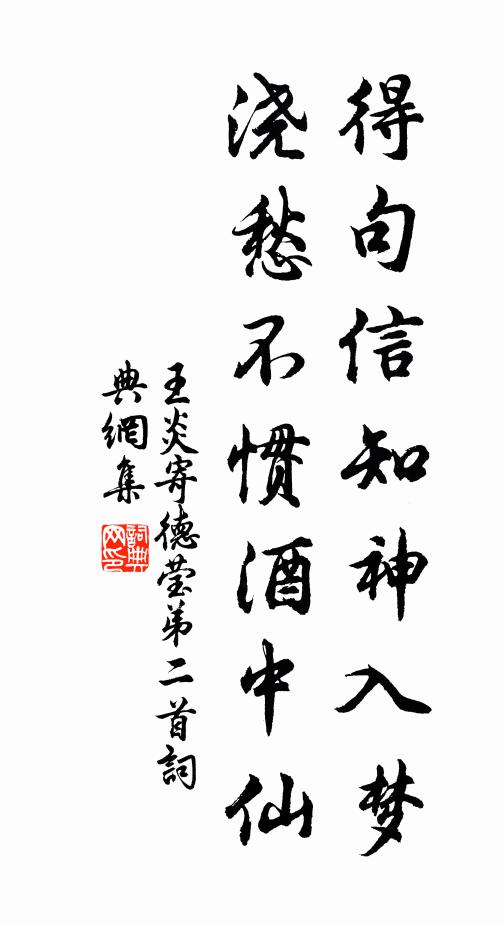 得句信知神入梦
浇愁不惯酒中仙
王炎寄德莹弟二首詞
典網集
詞典网印